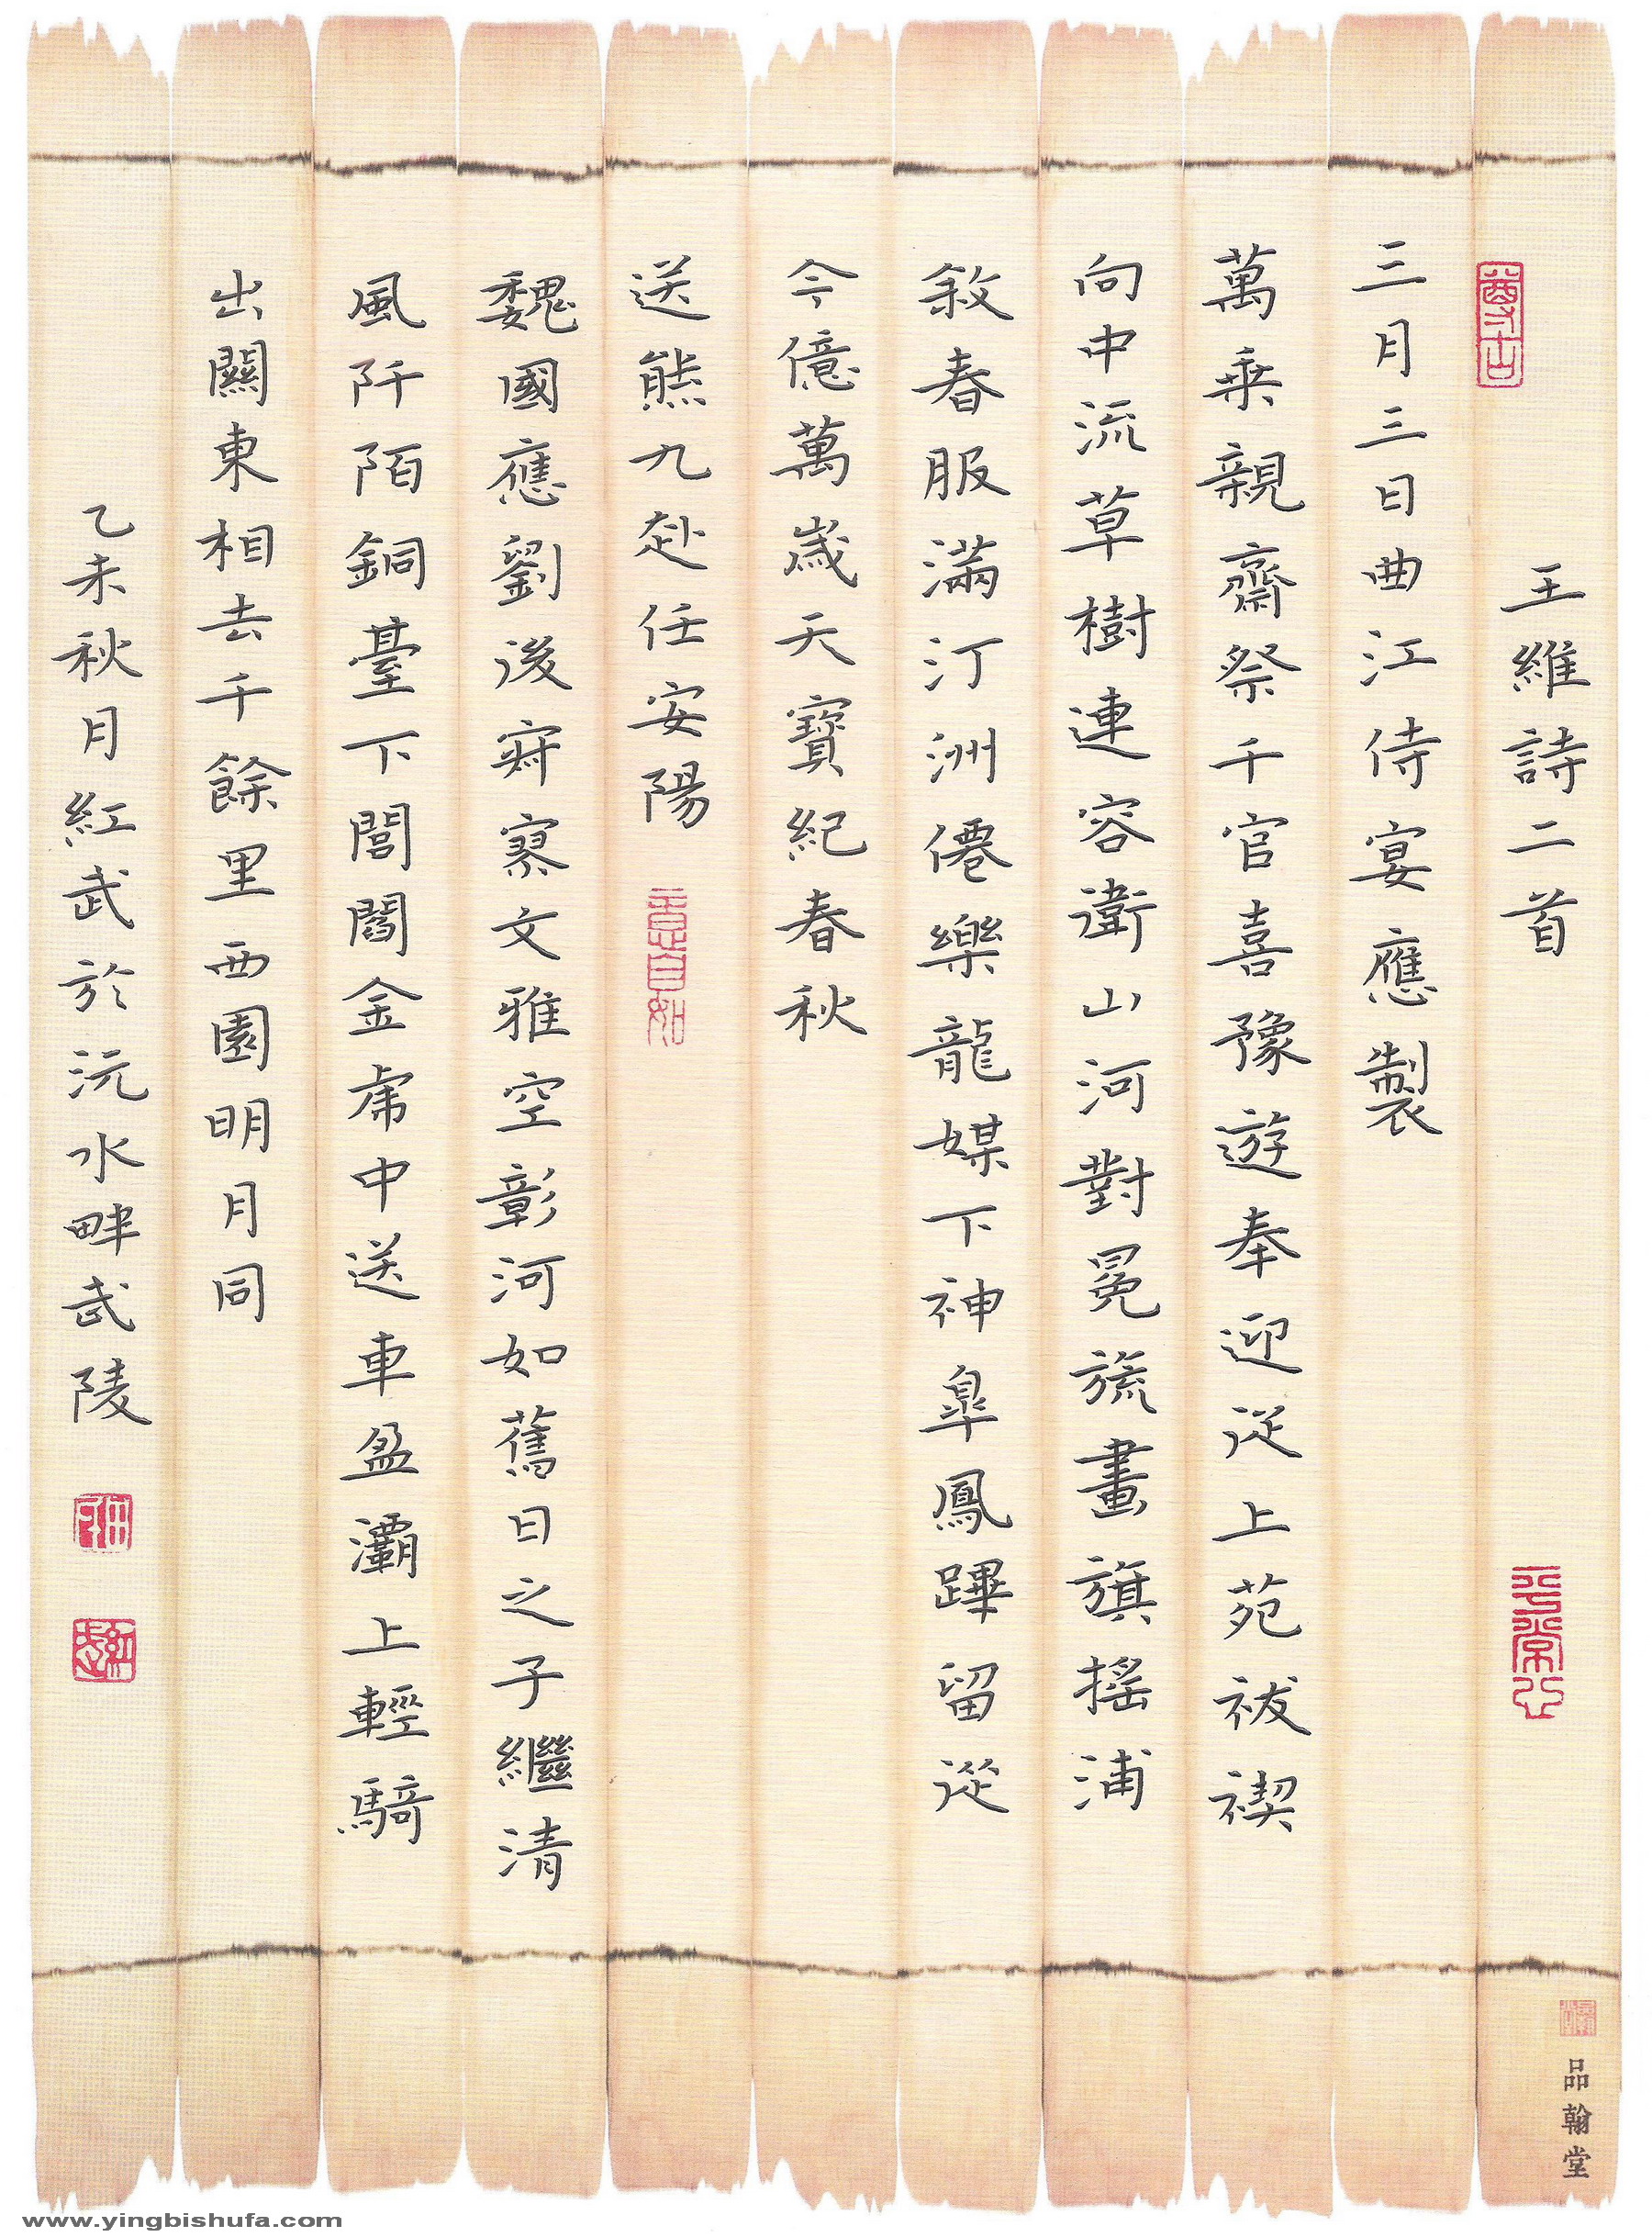 尊古
王維詩二首
平常心
三月三日曲江侍宴應製
萬乘親齋祭千官喜豫遊奉迎從上苑祓禊
向中流草樹連容衛山河對冕旒畫旗搖浦
敘春服滿汀洲僊樂龍媒下神皋鳳蹕留從
今億萬歲天寶紀春秋
送熊九赴任安陽
魏國應劉後寂寥文雅空彰河如舊日之子繼清
風阡陌銅臺下閭閻金虎中送車盈灞上輕騎
出關東相去千餘里西園明月同
乙未秋月紅武於沅水畔武陵
品翰堂
www.yingbishufa.com